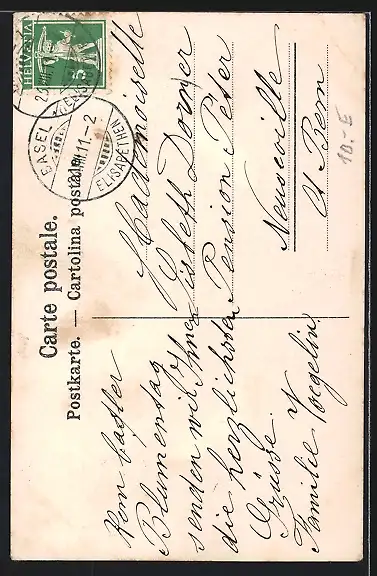 Carte postale.
Postkarte. — Cartolina postale.
HELVETIA
5
BASEL
11.-2
ELISABETHEN
Vom Basler
Blumentag
senden wir Ihnen
die herzlichsten
Grüsse.
Familie Voegelin
Mademoiselle
Lisbeth Dormer
Pension Peter
Neuveville
Ct Bern
10.-E